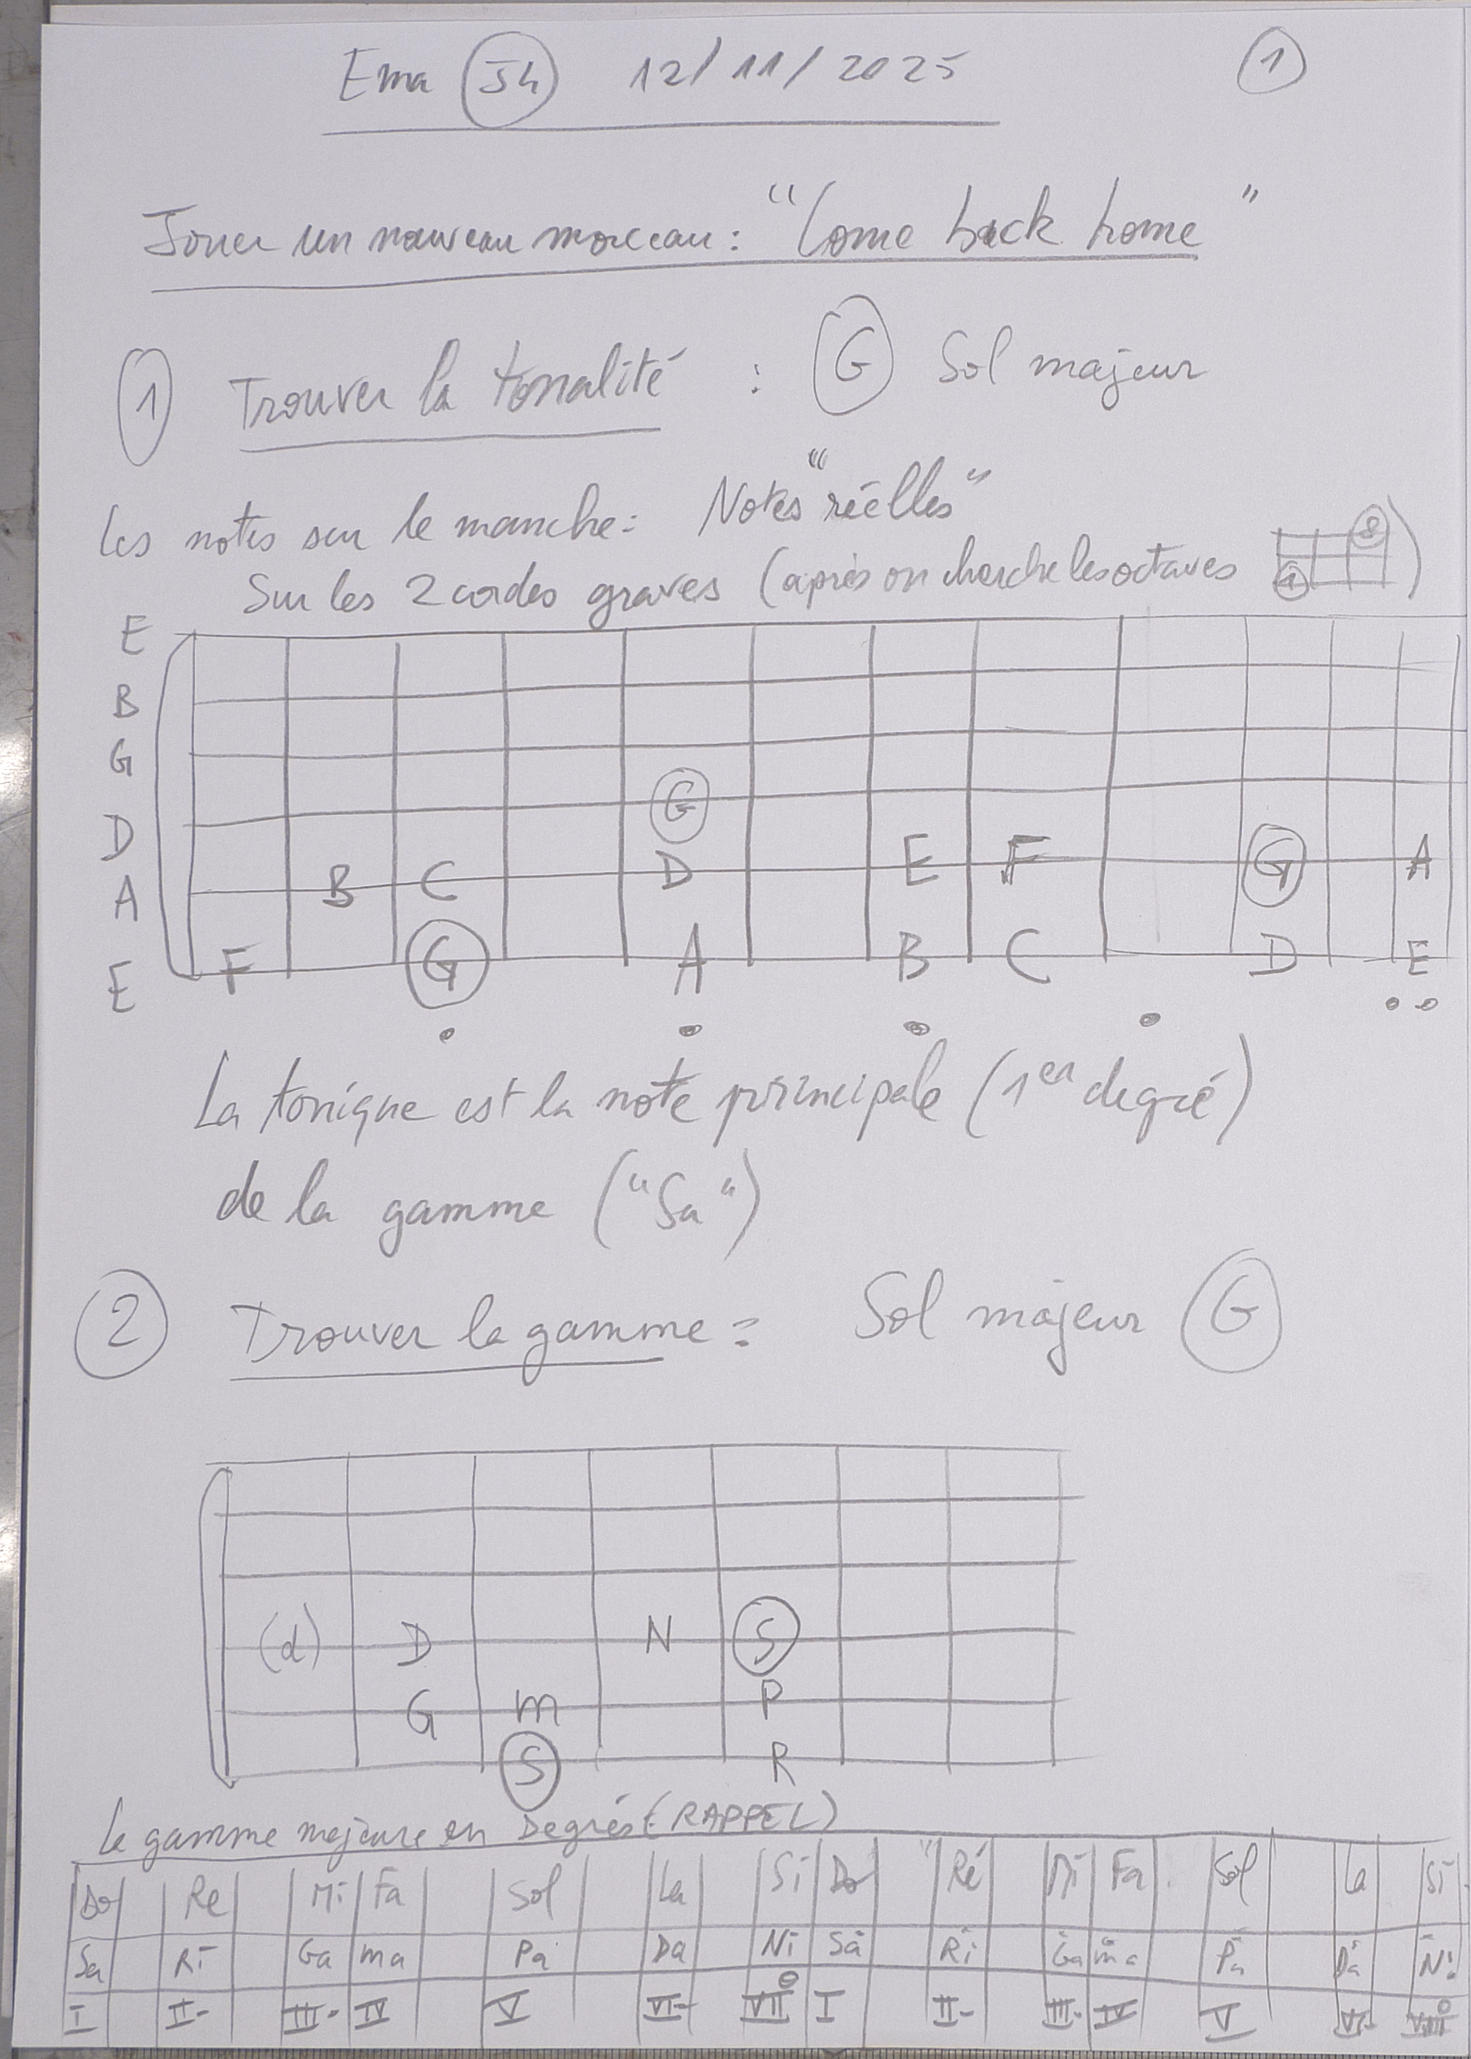 Ema 54 12/11/2025 1
Jouer un nouveau morceau : "Come back home"
1 Trouver la tonalité : G Sol majeur
Les notes sur le manche : Notes "réelles"
Sur les 2 cordes graves (après on cherche les octaves 1 8)
E
B
G
D G
A B C D E F G A
E F G A B C D E
La tonique est la note principale (1er degré)
de la gamme ("Sa")
2 Trouver la gamme = Sol majeur G
(d) D N S
G m P
S R
La gamme majeure en Degrés (RAPPEL)
Do Re Mi Fa Sol La Si Do Ré Mi Fa Sol La Si
Sa Ri Ga ma Pa Da Ni Sa Ri Ga ma Pa Da Ni
I II- III- IV V VI- VII° I II- III- IV V VI- VII°